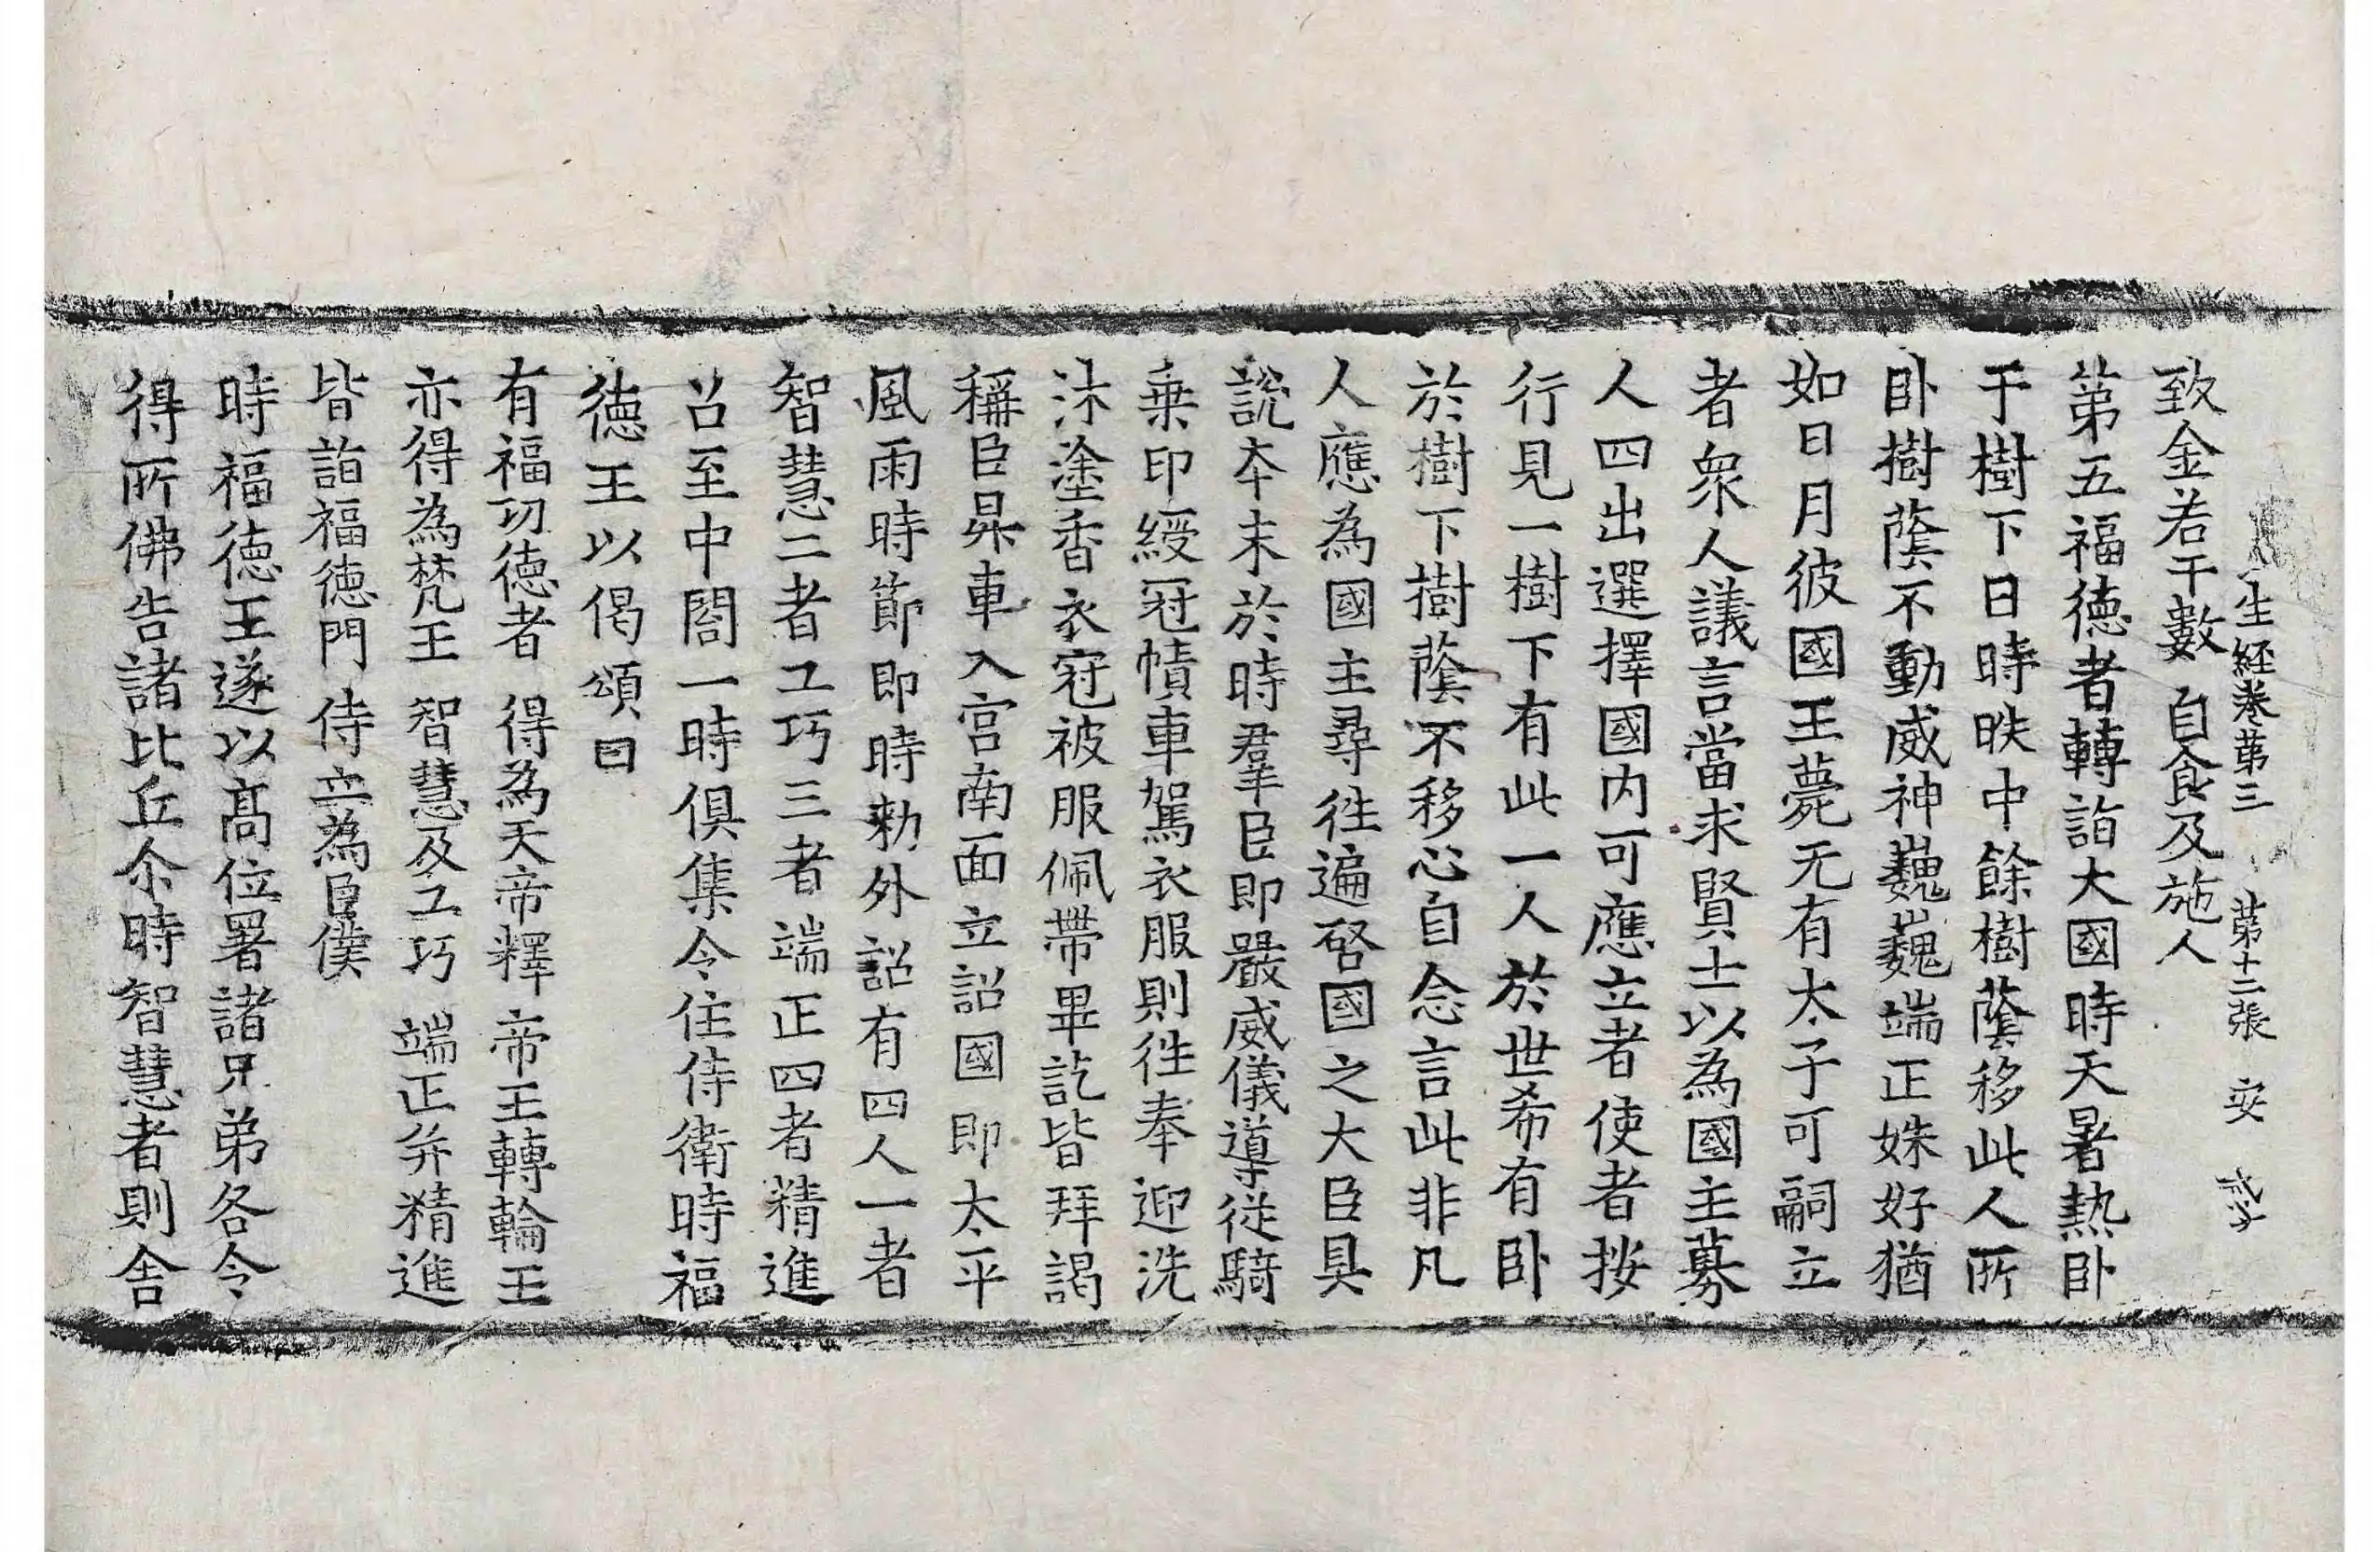 生経巻第三 第十二張 安
致金若干數 自食及施人
第五福德者轉詣大國時天暑熱卧
于樹下日時昳中餘樹蔭移此人所
卧樹蔭不動威神巍巍端正姝好猶
如日月彼國王薨无有太子可嗣立
者衆人議言當求賢士以為國主募
人四出選擇國內可應立者使者按
行見一樹下有此一人於世希有卧
於樹下樹蔭不移心自念言此非凡
人應為國主尋徃遍啓國之大臣具
說本末於時羣臣即嚴威儀導從騎
乗印綬冠幘車駕衣服則徃奉迎洗
沐塗香衣冠被服佩帶畢訖皆拜謁
稱臣昇車入宮南面立詔國即太平
風雨時節即時勑外詔有四人一者
智慧二者工巧三者端正四者精進
召至中閤一時俱集令住侍衛時福
德王以偈頌曰
有福功德者 得為天帝釋 帝王轉輪王
亦得為梵王 智慧及工巧 端正并精進
皆詣福德門 侍立為臣僕
時福德王遂以高位署諸兄弟各令
得所佛告諸比丘尒時智慧者則舍